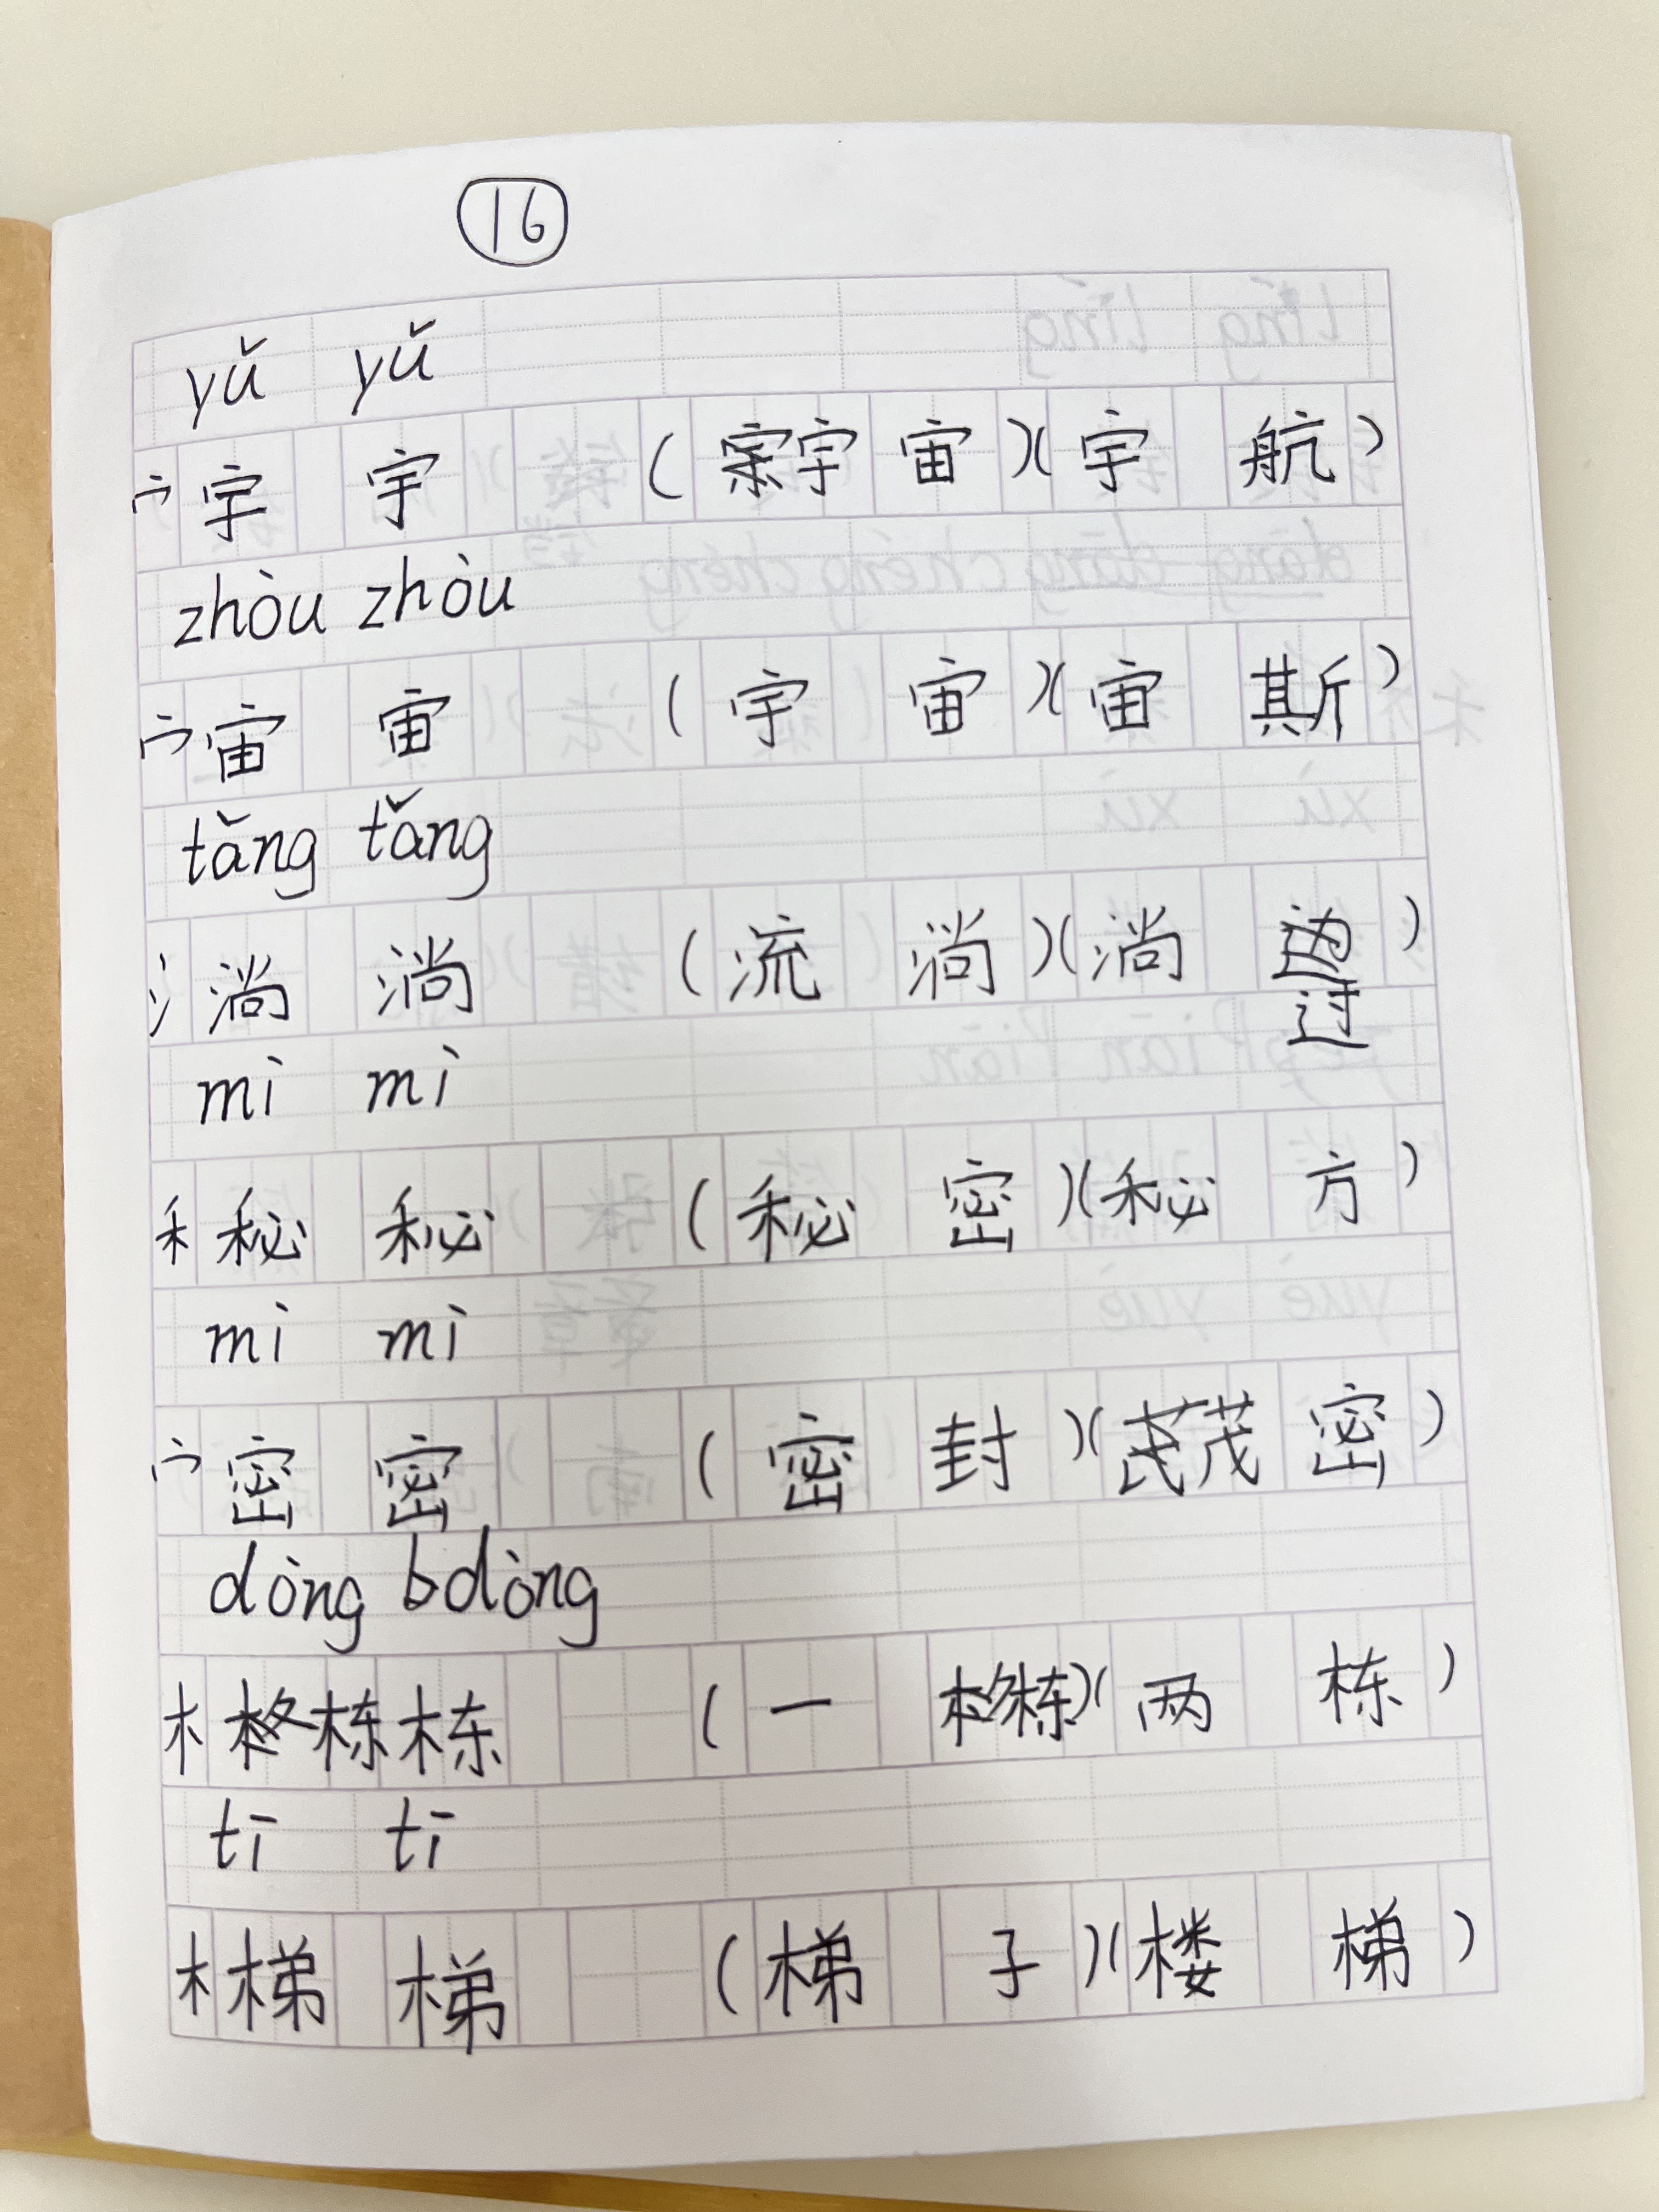 16
yǔ yǔ
宀 宇 宇 (宇宙)(宇航)
zhòu zhòu
宀 宙 宙 (宇宙)(宙斯)
tǎng tǎng
氵 淌 淌 (流淌)(淌过)
mì mì
禾 秘 秘 (秘密)(秘方)
mì mì
宀 密 密 (密封)(茂密)
dòng dòng
木 栋 栋 (一栋)(两栋)
tī tī
木 梯 梯 (梯子)(楼梯)